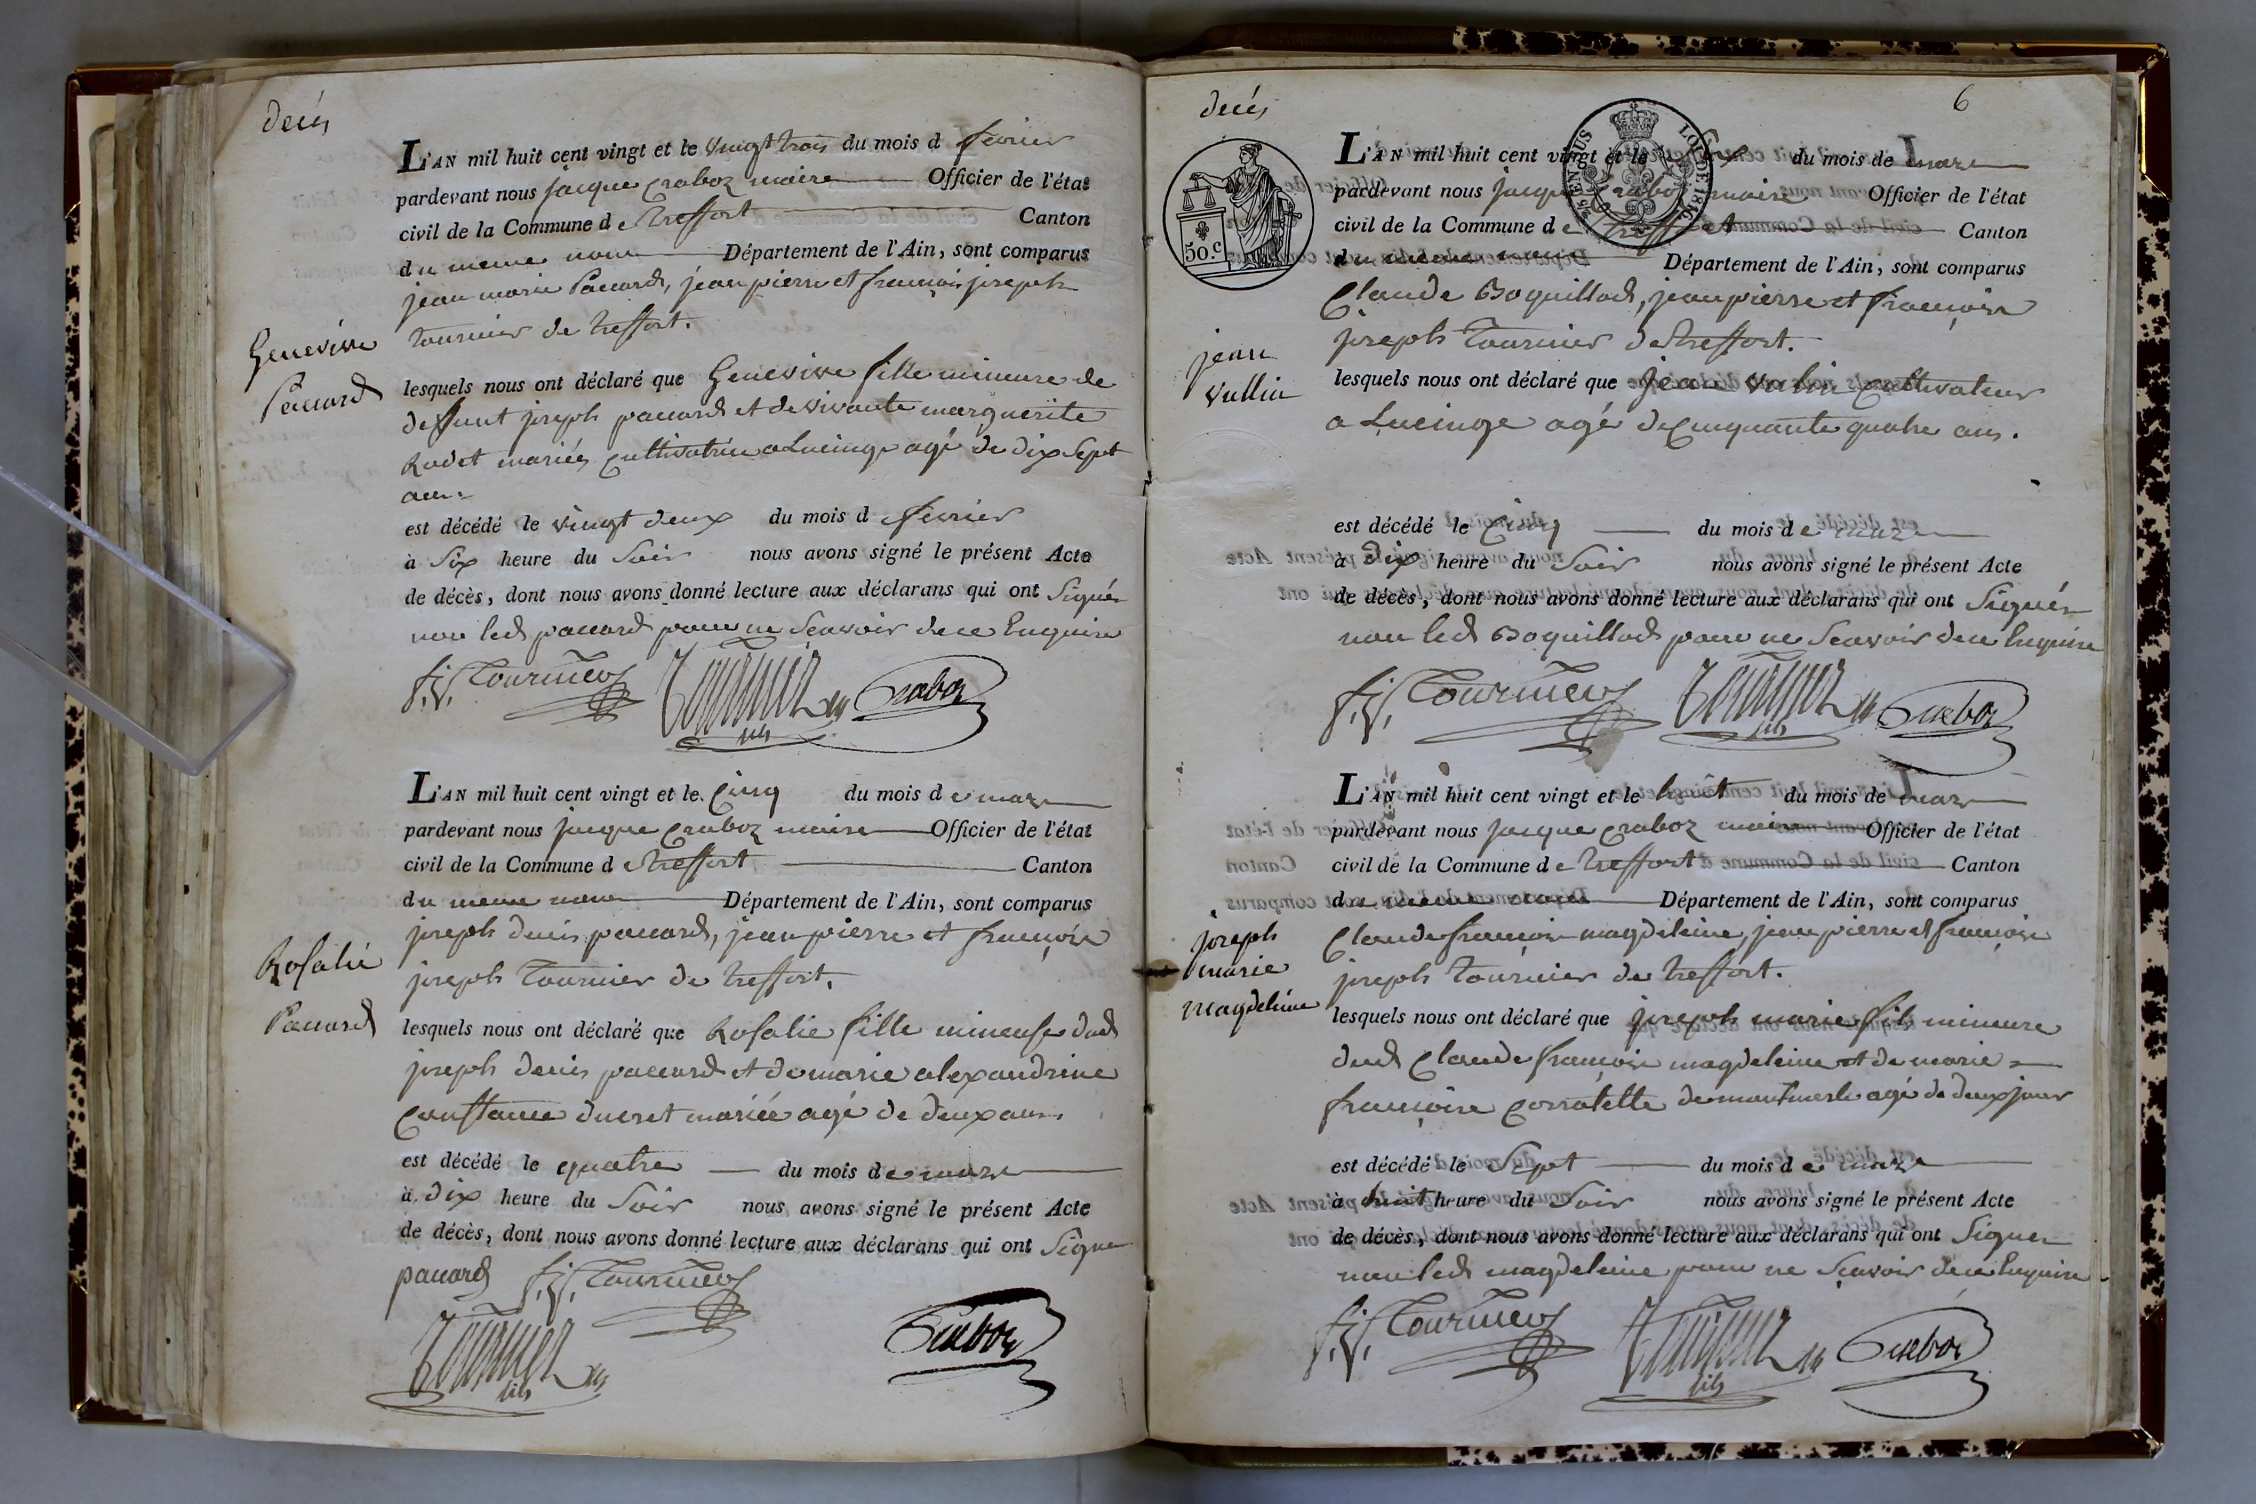 decés
L'AN mil huit cent vingt et le vingt trois du mois d fevrier
pardevant nous jacque craboz maire Officier de l'état
civil de la Commune de treffort Canton
du meme nom Département de l'Ain, sont comparus
jean marie Paccard, jean pierre et francois joseph
tournier de treffort.
Genevive
Paccard
lesquels nous ont déclaré que Genevive fille mineure de
deffunt joseph paccard et de vivante marguerite
Rodet mariés cultivatrice a Lucinge agé de dix sept
ans
est décédé le vingt deux du mois d fevrier
à Six heure du Soir nous avons signé le présent Acte
de décès, dont nous avons donné lecture aux déclarans qui ont Signés
non led paccard pour ne Scavoir de ce Enquire
f. j. Tournier Tournier fils Craboz
L'AN mil huit cent vingt et le Cinq du mois de mars
pardevant nous jacque craboz maire Officier de l'état
civil de la Commune de treffort Canton
du meme nom Département de l'Ain, sont comparus
joseph denis paccard, jean pierre et françois
joseph Tournier de treffort.
Rosalie
Paccard
lesquels nous ont déclaré que Rosalie fille mineure dud
joseph denis paccard et de marie alexandrine
Constance ducret mariée agé de deux ans
est décédé le quatre du mois de mars
à dix heure du Soir nous avons signé le présent Acte
de décès, dont nous avons donné lecture aux déclarans qui ont Signe
paccard f. j. Tournier
Tournier fils Craboz
decés
6
50.c
LOI DE 1816
L'AN mil huit cent vingt et le Six du mois de mars
pardevant nous jacque craboz maire Officier de l'état
civil de la Commune de treffort Canton
du meme nom Département de l'Ain, sont comparus
Claude Boquillod, jean pierre et françois
joseph Tournier de treffort.
jean
Vullin
lesquels nous ont déclaré que jean Vulin Cultivateur
a Lucinge agé de Cinquante quatre ans.
est décédé le Cinq du mois de mars
à Dix heure du Soir nous avons signé le présent Acte
de décès, dont nous avons donné lecture aux déclarans qui ont Signés
non led Boquillod pour ne Scavoir de ce Enquire
f. j. Tournier Tournier fils Craboz
L'AN mil huit cent vingt et le huit du mois de mars
pardevant nous jacque craboz maire Officier de l'état
civil de la Commune de treffort Canton
du meme nom Département de l'Ain, sont comparus
Claude françois magdeleine, jean pierre et françois
joseph Tournier de treffort.
joseph
marie
magdeleine
lesquels nous ont déclaré que joseph marie fils mineure
dud Claude françois magdeleine et de marie
françoise corratette de montmerle agé de deux jours
est décédé le Sept du mois de mars
à huit heure du Soir nous avons signé le présent Acte
de décès, dont nous avons donné lecture aux déclarans qui ont Signer
non led magdeleine pour ne Scavoir de ce Enquire
f. j. Tournier Tournier fils Craboz